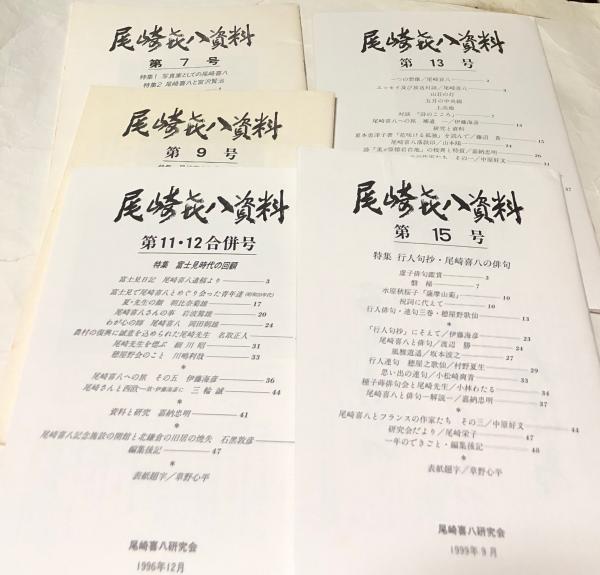 尾崎㐂八資料
第7号
特集1 写真家としての尾崎喜八
特集2 尾崎喜八と宮沢賢治
尾崎㐂八資料
第13号
一つの想像/尾崎喜八 3
エッセイ及び放送対談/尾崎喜八
山荘の灯
五月の中央線
上高地
対談 「詩のこころ」 7
尾崎喜八への旅 補遺 一/伊藤海彦
研究と資料
尾崎喜八落款印/山本陽 24
尾崎㐂八資料
第9号
尾崎㐂八資料
第11・12合併号
特集 富士見時代の回顧
富士見日記 尾崎喜八遺稿より 3
富士見で尾崎喜八とめぐり会った青年達
夏・先生の顔 朝比奈菊雄 17
尾崎喜八さんの事 岩波篤雄 20
わが心の師 尾崎喜八 岡田朝雄 24
農村の復興に誠意を込められた尾崎先生 名取正人
尾崎先生を偲ぶ 細川昭 31
穂屋野会のこと 川嶋利哉 33
*
尾崎喜八への旅 その五 伊藤海彦 36
尾崎さんと西欧 三輪誠 44
*
資料と研究 嘉納忠明 41
*
尾崎喜八記念施設の開館と北鎌倉の旧居の焼失 石黒敦彦
編集後記 47
*
表紙題字/草野心平
尾崎喜八研究会
1996年12月
尾崎㐂八資料
第15号
特集 行人句抄・尾崎喜八の俳句
虚子俳句鑑賞 3
盤梯 7
水原秋桜子「薩摩山菊」 10
祝詞に代えて 10
行人俳句・連句三巻・穂屋野歌仙 13
*
「行人句抄」にそえて/伊藤海彦 23
尾崎喜八と俳句/渡辺勝 24
風雅逍遙/坂本波之 27
行人連句 穂屋之歌仙/村野夏生 29
思い出の連句/小松崎爽青 33
種子蒔俳句会と尾崎先生/小林わたる 34
尾崎喜八と俳句―解説―/嘉納忠明 37
*
尾崎喜八とフランスの作家たち その三/中原好文 44
研究会だより/尾崎栄子 47
一年のできごと・編集後記 48
*
表紙題字/草野心平
尾崎喜八研究会
1999年9月